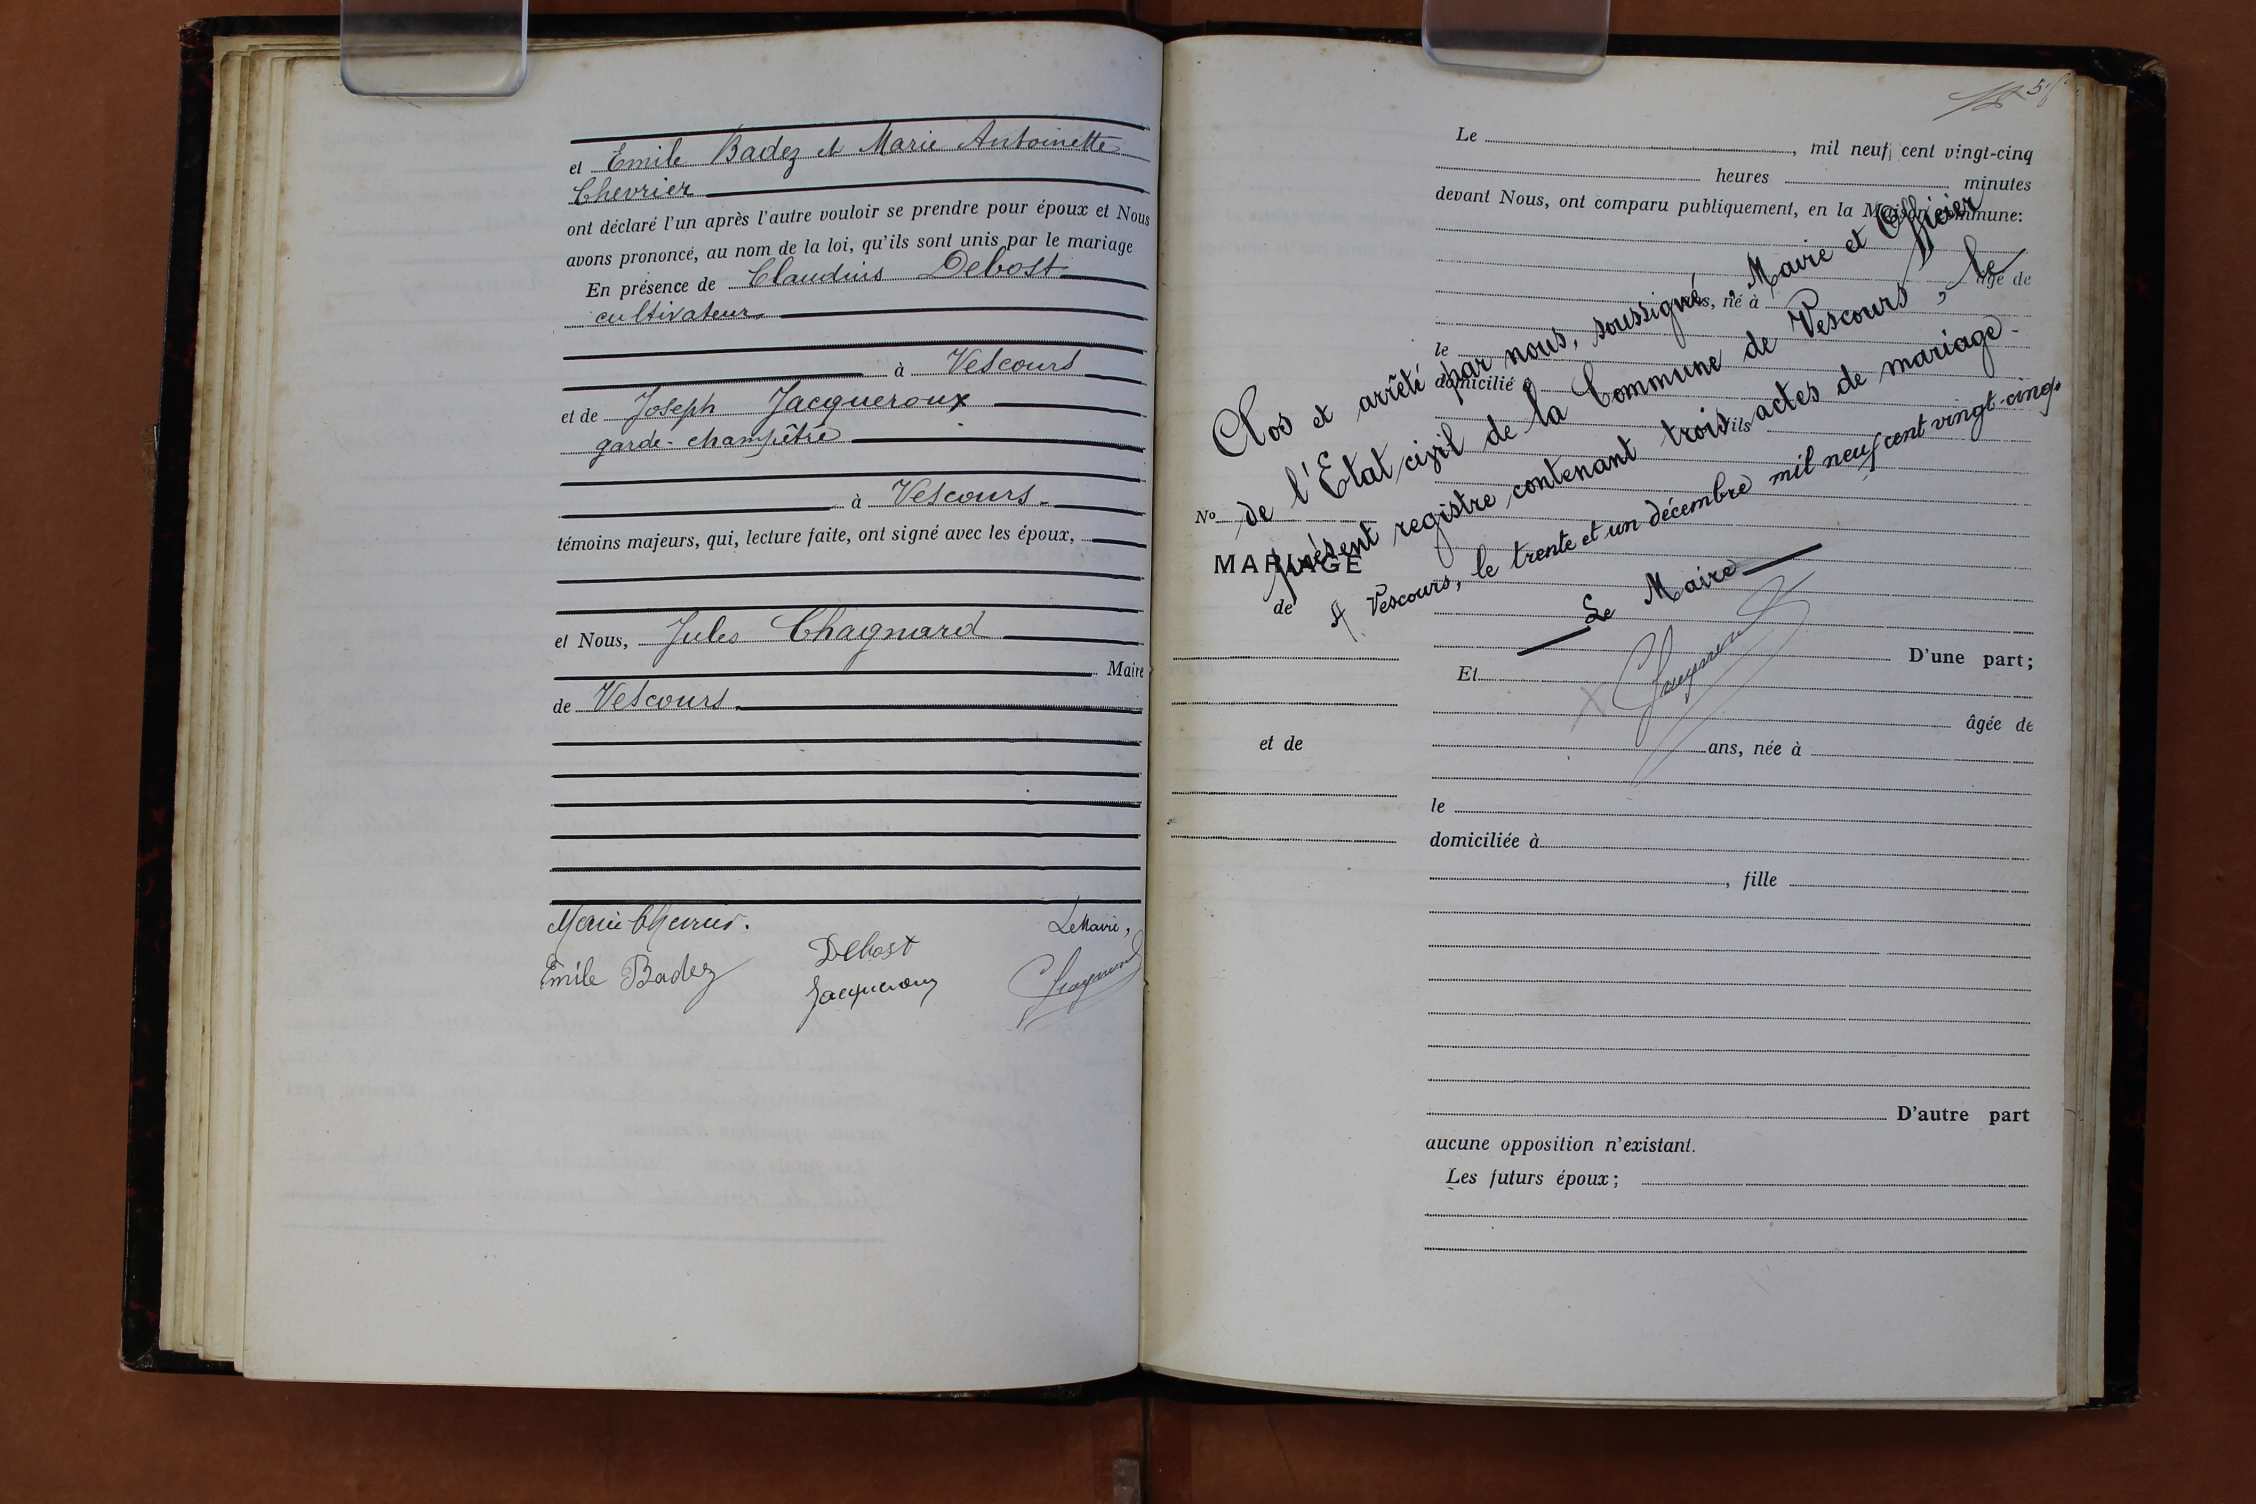 et Emile Badez et Marie Antoinette
Chevrier
ont déclaré l'un après l'autre vouloir se prendre pour époux et Nous
avons prononcé, au nom de la loi, qu'ils sont unis par le mariage
En présence de Claudius Debost
cultivateur
à Vescours
et de Joseph Jacqueroux
garde-champêtre
à Vescours
témoins majeurs, qui, lecture faite, ont signé avec les époux,
et Nous, Jules Chagnard
Maire
de Vescours
Marie Chevrier.
Le Maire,
Debost
Emile Badez
Jacqueroux
Chagnard
Le , mil neuf cent vingt-cinq
heures minutes
devant Nous, ont comparu publiquement, en la Maison commune:
âgé de
ans, né à
le
domicilié à
fils
Clos et arrêté par nous, soussigné, Maire et Officier
de l'Etat civil de la Commune de Vescours, le
présent registre contenant trois actes de mariage.
A Vescours, le trente et un décembre mil neuf cent vingt-cinq.
Le Maire
Chagnard
No
MARIAGE
de
et de
D'une part;
Et
âgée de
ans, née à
le
domiciliée à
, fille
D'autre part
aucune opposition n'existant.
Les futurs époux;